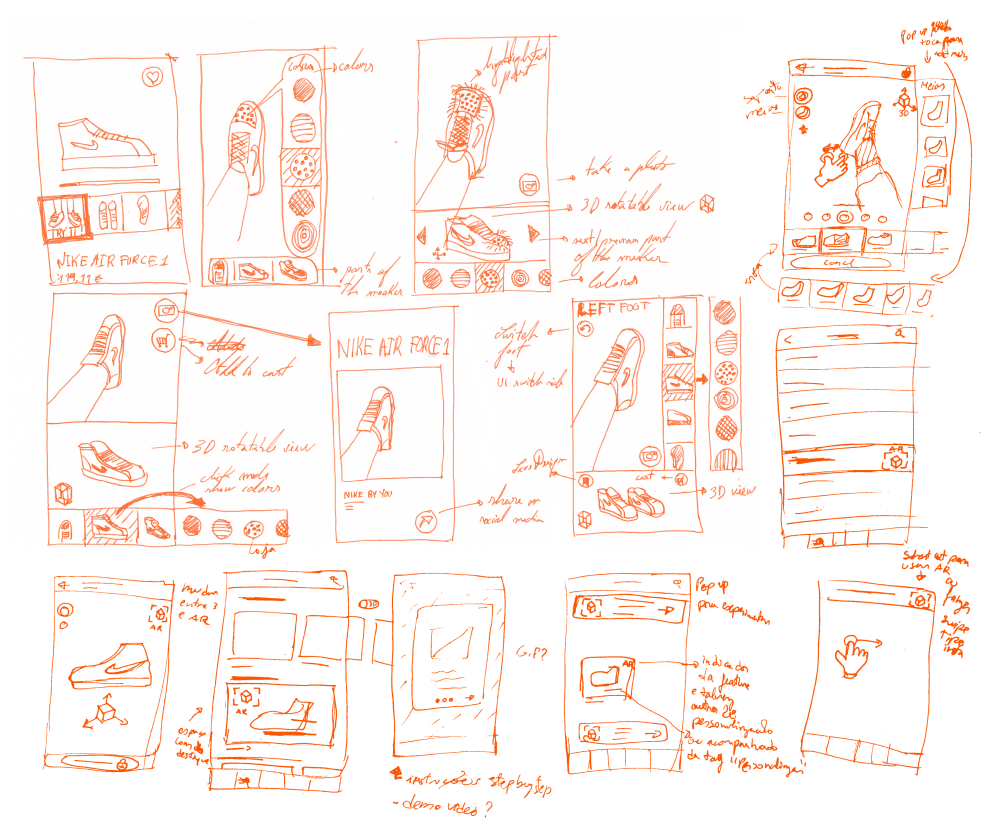 TRY IT
NIKE AIR FORCE 1
colors
colors
parts of
the sneaker
highlighted
part
take a photo
3D rotatable view
next/previous part
of the sneaker
Colors
Pop up
meias
3D
Meias
Cancel
Add to cart
3D rotatable view
show colors
Loja
NIKE AIR FORCE 1
NIKE BY YOU
share on
social media
LEFT FOOT
Switch
foot
UI switch side
cart
3D view
AR
mudar
entre 3
e AR
AR
espaço
com
destaque
AR
G.P?
instruções step by step
- demo video?
Pop up
para experimentar
AR
indicador
da feature
e talvez
outra de
personalização
ou acompanhado
da tag "Personalizar"
Shortcut para
usar AR
?
swipe